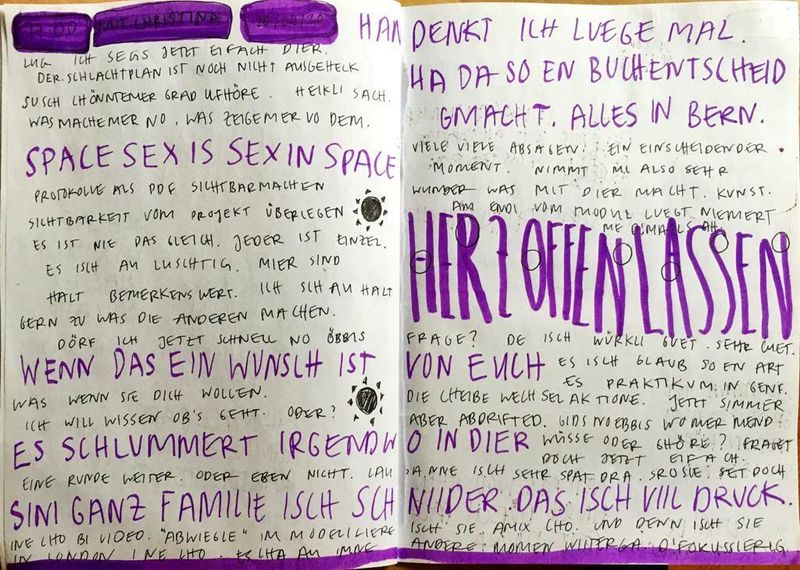 11:00 MIT CHRISTINA 30/04/20
LUG ICH SEGS JETZT EIFACH DIER.
DER SCHLACHTPLAN IST NOCH NICHT AUSGEHECK
SUSCH CHÖNNTEMER GRAD UFHÖRE. HEIKLI SACH.
WAS MACHEMER NO. WAS ZEIGEMER VO DEM.
SPACE SEX IS SEX IN SPACE
PROTOKOLLE ALS PDF SICHTBARMACHEN
SICHTBARKEIT VOM PROJEKT ÜBERLEGEN
ES IST NIE DAS GLEICH. JEDER IST EINZEL.
ES ISCH AU LUSCHTIG. MIER SIND
HALT BEMERKENSWERT. ICH SCH AU HALT
GERN ZU WAS DIE ANDEREN MACHEN.
DÖRF ICH JETZT SCHNELL NO ÖBBIS
WENN DAS EIN WUNSCH IST
WAS WENN SIE DICH WOLLEN.
ICH WILL WISSEN OB'S GEHT. ODER?
ES SCHLUMMERT IRGENDW
EINE RUNDE WEITER. ODER EBEN NICHT. LAU
SINI GANZ FAMILIE ISCH SCH
INE CHO BI VIDEO. "ABWIEGLE" IM MODELLIERE
IN LONDON INE CHO. ES CHA AU IMME
HAN DENKT ICH LUEGE MAL.
HA DA SO EN BUCHENTSCHEID
GMACHT. ALLES IN BERN.
VIELE VIELE ABSAGEN. EIN EINSCHEIDENDER
MOMENT. NIMMT MI ALSO SEHR
WUNDER WAS MIT DIER MACHT. KUNST.
AM ENDI VOM MODUL LUEGT NIEMERT
ME EMAILS AH.
HERZ OFFEN LASSEN
FRAGE? DE ISCH WÜRKLI GUET. SEHR GUET.
VON EUCH ES ISCH GLAUB SO EN ART
ES PRAKTIKUM IN GENF.
DIE CHEIBE WECHSELAKTIONE. JETZT SIMMER
ABER ABDRIFTED. GIDS NO EBBIS WO MER MEND
O IN DIER WÜSSE ODER GHÖRE? FRAGET
DOCH JETZT EIFACH.
DA NNE ISCH SEHR SPAT DRA. SROSIE. SET DOCH
NIIDER. DAS ISCH VIIL DRUCK.
ISCH SIE AMIX CHO. UND DENN ISCH SIE
ANDERE MOMEN WIITERGA. D'FOKUSSIERIG